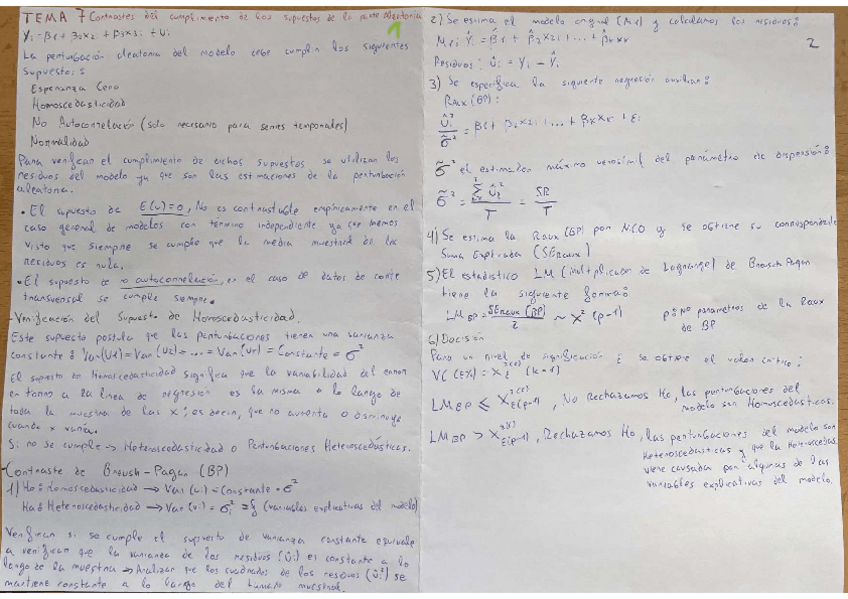 TEMA 7 Contrastes del cumplimiento de los supuestos de la parte Aleatoria
1
Yi = β1 + β2x2i + β3x3i + Ui
La perturbación aleatoria del modelo debe cumplir los siguientes
supuestos
Esperanza Cero
Homoscedasticidad
No Autocorrelación (solo necesario para series temporales)
Normalidad
Para verificar el cumplimiento de dichos supuestos se utilizan los
residuos del modelo ya que son las estimaciones de la perturbación
aleatoria.
• El supuesto de E(u)=0, No es contrastable empíricamente en el
caso general de modelos con término independiente ya que hemos
visto que siempre se cumple que la media muestral de los
residuos es nula.
• El supuesto de no autocorrelación, en el caso de datos de corte
transversal se cumple siempre.
- Verificación del Supuesto de Homoscedasticidad.
Este supuesto postula que las perturbaciones tienen una varianza
constante: Var(U1) = Var(U2) = ... = Var(UT) = Constante = σ²
El supuesto de Homoscedasticidad significa que la variabilidad del error
en torno a la linea de regresión es la misma a lo largo de
toda la muestra de las x; es decir, que no aumenta o disminuye
cuando x varia.
Si no se cumple → Heteroscedasticidad o Perturbaciones Heteroscedásticas.
- Contraste de Breush-Pagan (BP)
1) Ho: Homoscedasticidad → Var(ui) = Constante = σ²
Ha: Heteroscedasticidad → Var(ui) = σi² = f (variables explicativas del modelo)
Verificar si se cumple el supuesto de varianza constante equivale
a verificar que la varianza de los residuos (ûi) es constante a lo
largo de la muestra → Analizar que los cuadrados de los residuos (ûi²) se
mantiene constante a lo largo del tamaño muestral.
2) Se estima el modelo original (M1) y calculamos los residuos:
2
Ŷi = β̂1 + β̂2x2i + ... + β̂kxk
Residuos: ûi = Yi - Ŷi
3) Se especifica la siguiente regresión auxiliar:
Raux(BP):
ûi²/σ̃² = β1 + β2x2i + ... + βkxki + εi
σ̃² el estimador máximo verosimil del parámetro de dispersión:
σ̃² = Σûi²/T = SR/T
4) Se estima la Raux(BP) por MCO y se obtiene su correspondiente
Suma Explicada (SEraux)
5) El estadístico LM (Multiplicador de Lagrange) de Breush Pagan
tiene la siguiente forma:
LM BP = SEraux(BP)/2 ~ χ²(p-1) p: nº parametros de la Raux
de BP
6) Decisión
Para un nivel de significación ε se obtiene el valor crítico:
VC(ε%) = χ²ε (k-1)
LM BP ≤ χ²ε(p-1), No Rechazamos Ho, las perturbaciones del
modelo son Homoscedasticas.
LM BP > χ²ε(p-1), Rechazamos Ho, las perturbaciones del modelo son
Heteroscedasticas y que la Heteroscedas.
viene causada por algunas de las
variables explicativas del modelo.